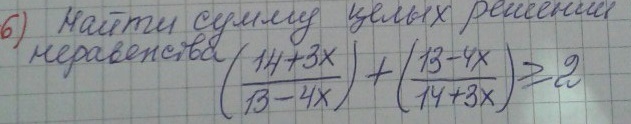 6) Найти сумму целых решений
неравенства (14+3x/13-4x) + (13-4x/14+3x) ≥ 2